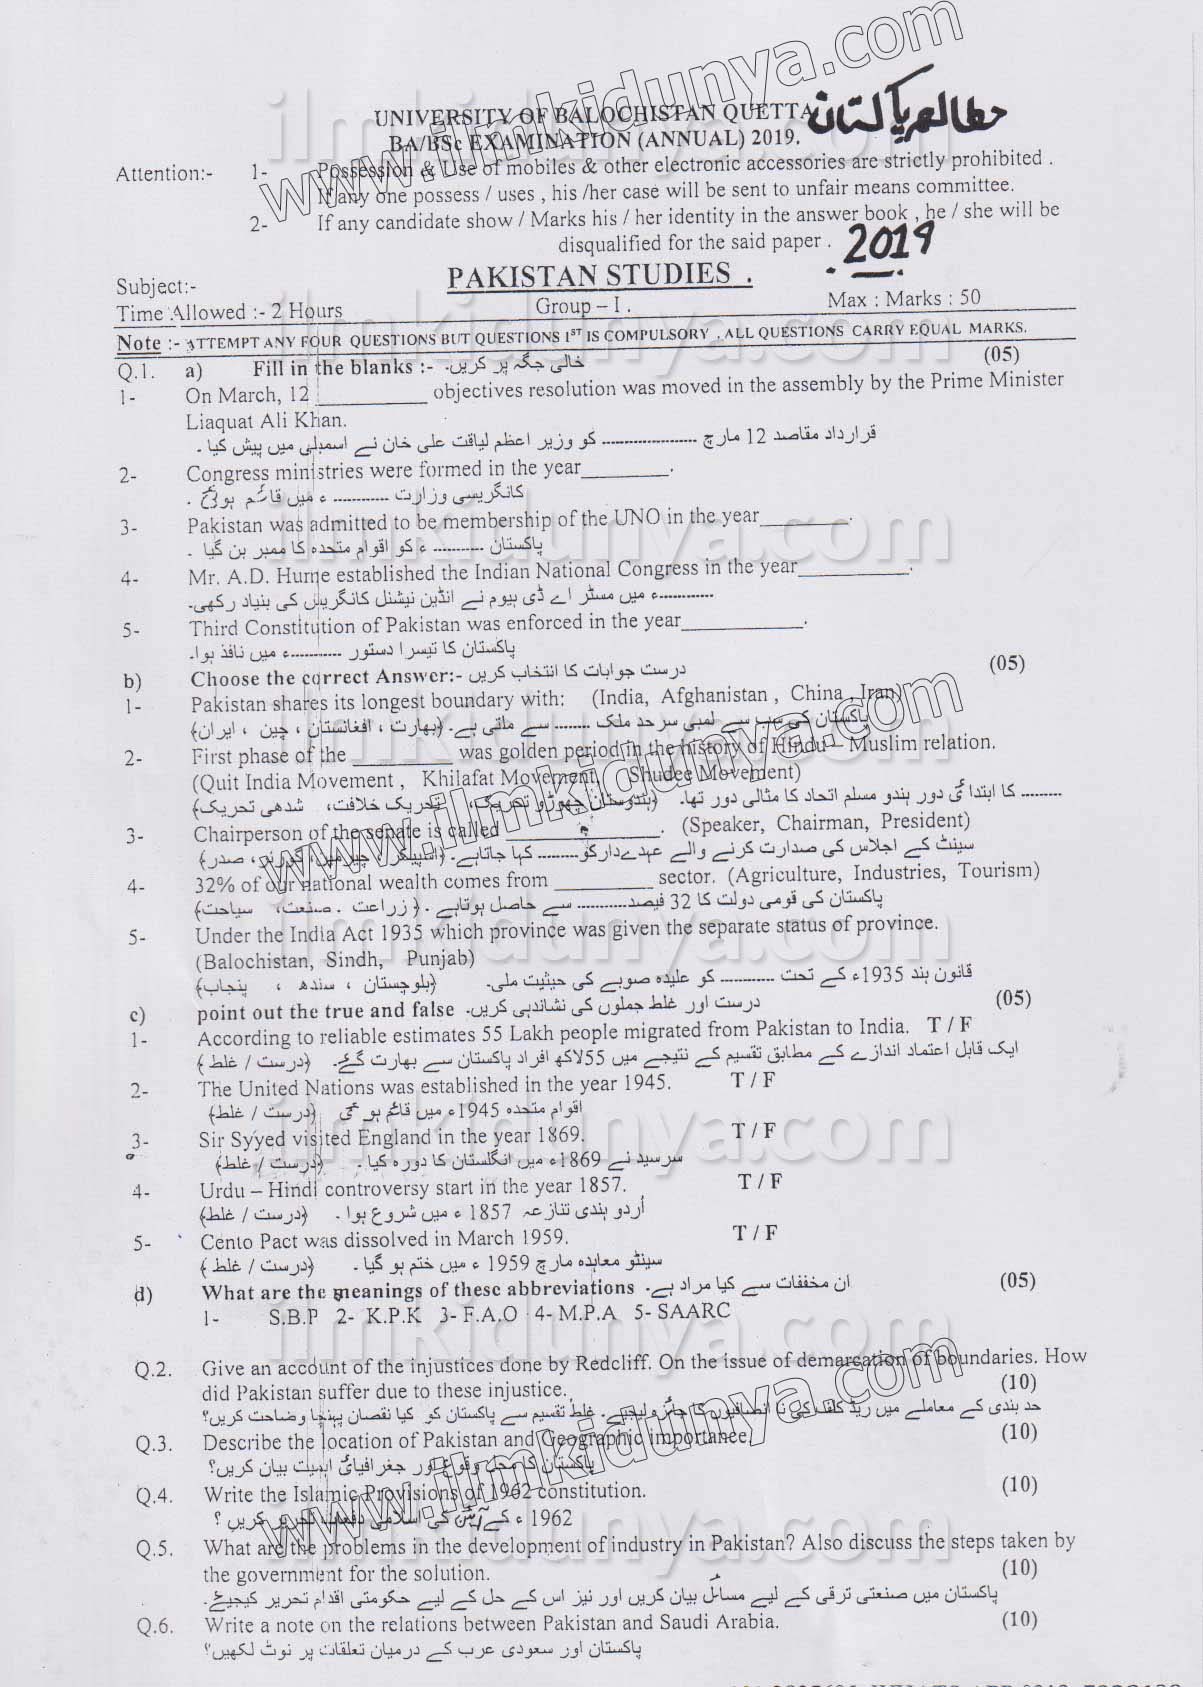 UNIVERSITY OF BALOCHISTAN QUETTA
مطالعہ پاکستان
BA/BSc EXAMINATION (ANNUAL) 2019.
Attention:- 1- Possession & Use of mobiles & other electronic accessories are strictly prohibited .
If any one possess / uses , his /her case will be sent to unfair means committee.
2- If any candidate show / Marks his / her identity in the answer book , he / she will be
disqualified for the said paper .
2019
Subject:- PAKISTAN STUDIES .
Time Allowed :- 2 Hours Group – I . Max : Marks : 50
Note :- ATTEMPT ANY FOUR QUESTIONS BUT QUESTIONS 1ST IS COMPULSORY . ALL QUESTIONS CARRY EQUAL MARKS.
Q.1. a) Fill in the blanks :- خالی جگہ پر کریں. (05)
1- On March, 12 __________ objectives resolution was moved in the assembly by the Prime Minister
Liaquat Ali Khan.
قرارداد مقاصد 12 مارچ ---------------- کو وزیر اعظم لیاقت علی خان نے اسمبلی میں پیش کیا .
2- Congress ministries were formed in the year________.
کانگریسی وزارت ------------ ء میں قائم ہوئی .
3- Pakistan was admitted to be membership of the UNO in the year________.
پاکستان ----------- ء کو اقوام متحدہ کا ممبر بن گیا .
4- Mr. A.D. Hume established the Indian National Congress in the year__________.
------------ء میں مسٹر اے ڈی ہیوم نے انڈین نیشنل کانگریس کی بنیاد رکھی.
5- Third Constitution of Pakistan was enforced in the year___________.
پاکستان کا تیسرا دستور -----------ء میں نافذ ہوا.
b) Choose the correct Answer:- درست جوابات کا انتخاب کریں (05)
1- Pakistan shares its longest boundary with: (India, Afghanistan , China , Iran)
پاکستان کی سب سے لمبی سرحد ملک -------- سے ملتی ہے. (بھارت ، افغانستان ، چین ، ایران)
2- First phase of the _________ was golden period in the history of Hindu – Muslim relation.
(Quit India Movement , Khilafat Movement, Shudee Movement)
--------- کا ابتدائی دور ہندو مسلم اتحاد کا مثالی دور تھا. (ہندوستان چھوڑو تحریک، تحریک خلافت، شدھی تحریک)
3- Chairperson of the senate is called ______________. (Speaker, Chairman, President)
سینٹ کے اجلاس کی صدارت کرنے والے عہدےدارکو--------- کہا جاتاہے. (اسپیکر، چیرمین، گورنر، صدر)
4- 32% of our national wealth comes from _________ sector. (Agriculture, Industries, Tourism)
پاکستان کی قومی دولت کا 32 فیصد----------- سے حاصل ہوتاہے . (زراعت . صنعت، سیاحت)
5- Under the India Act 1935 which province was given the separate status of province.
(Balochistan, Sindh, Punjab)
قانون ہند 1935ء کے تحت ------------ کو علیدہ صوبے کی حیثیت ملی. (بلوچستان ، سندھ ، پنجاب)
c) point out the true and false درست اور غلط جملوں کی نشاندہی کریں. (05)
1- According to reliable estimates 55 Lakh people migrated from Pakistan to India. T / F
ایک قابل اعتماد اندازے کے مطابق تقسیم کے نتیجے میں 55لاکھ افراد پاکستان سے بھارت گئے. (درست / غلط)
2- The United Nations was established in the year 1945. T / F
اقوام متحدہ 1945ء میں قائم ہو ئی (درست / غلط)
3- Sir Syyed visited England in the year 1869. T / F
سرسید نے 1869ء میں انگلستان کا دورہ کیا . (درست / غلط)
4- Urdu – Hindi controversy start in the year 1857. T / F
اُردو ہندی تنازعہ 1857 ء میں شروع ہوا . (درست / غلط)
5- Cento Pact was dissolved in March 1959. T / F
سینٹو معاہدہ مارچ 1959 ء میں ختم ہو گیا . (درست / غلط)
d) What are the meanings of these abbreviations ان مخففات سے کیا مراد ہے. (05)
1- S.B.P 2- K.P.K 3- F.A.O 4- M.P.A 5- SAARC
Q.2. Give an account of the injustices done by Redcliff. On the issue of demarcation of boundaries. How
did Pakistan suffer due to these injustice. (10)
حد بندی کے معاملے میں ریڈ کلف کی نا انصافیوں کا جائزہ لیجیے. غلط تقسیم سے پاکستان کو کیا نقصان پہنچا وضاحت کریں؟
Q.3. Describe the location of Pakistan and Geographic importance. (10)
پاکستان کا محل وقوع اور جغرافیائی اہمیت بیان کریں؟
Q.4. Write the Islamic Provisions of 1962 constitution. (10)
1962 ء کے آئین کی اسلامی دفعات تحریر کریں ؟
Q.5. What are the problems in the development of industry in Pakistan? Also discuss the steps taken by
the government for the solution. (10)
پاکستان میں صنعتی ترقی کے لیے مسائل بیان کریں اور نیز اس کے حل کے لیے حکومتی اقدام تحریر کیجیئے.
Q.6. Write a note on the relations between Pakistan and Saudi Arabia. (10)
پاکستان اور سعودی عرب کے درمیان تعلقات پر نوٹ لکھیں؟
www.ilmkidunya.com
www.ilmkidunya.com
www.ilmkidunya.com
ilmkidunya.com
ilmkidunya.com
ilmkidunya.com
ilmkidunya.com
ilmkidunya.com
ilmkidunya.com
ilmkidunya.com
ilmkidunya.com